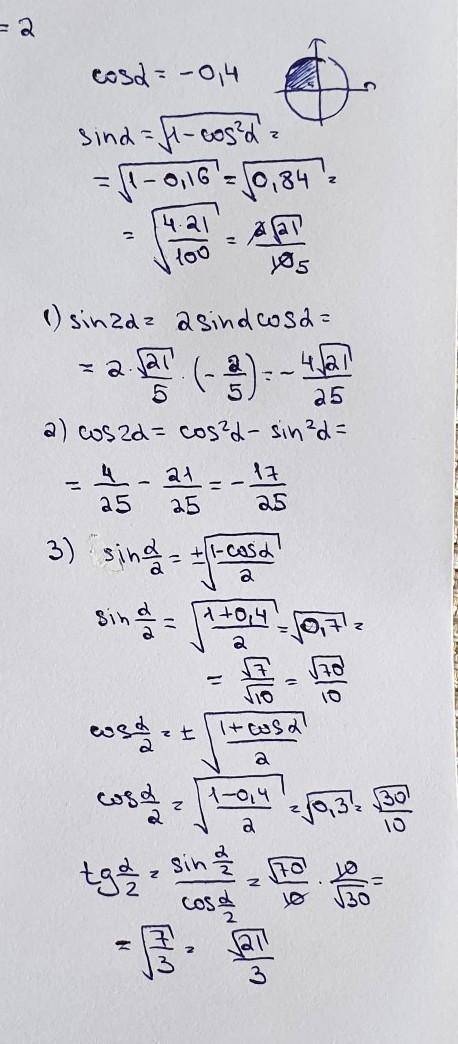 = 2
cosα = -0,4
sinα = √(1-cos²α) =
= √(1-0,16) = √(0,84) =
= √(4·21/100) = 2√21/10 5
1) sin2α = 2sinαcosα =
= 2·√21/5·(-2/5) = -4√21/25
2) cos2α = cos²α - sin²α =
= 4/25 - 21/25 = -17/25
3) sin α/2 = ±√((1-cosα)/2)
sin α/2 = √((1+0,4)/2) = √(0,7) =
= √7/√10 = √70/10
cos α/2 = ±√((1+cosα)/2)
cos α/2 = √((1-0,4)/2) = √(0,3) = √30/10
tg α/2 = (sin α/2)/(cos α/2) = √70/10 · 10/√30 =
= √(7/3) = √21/3